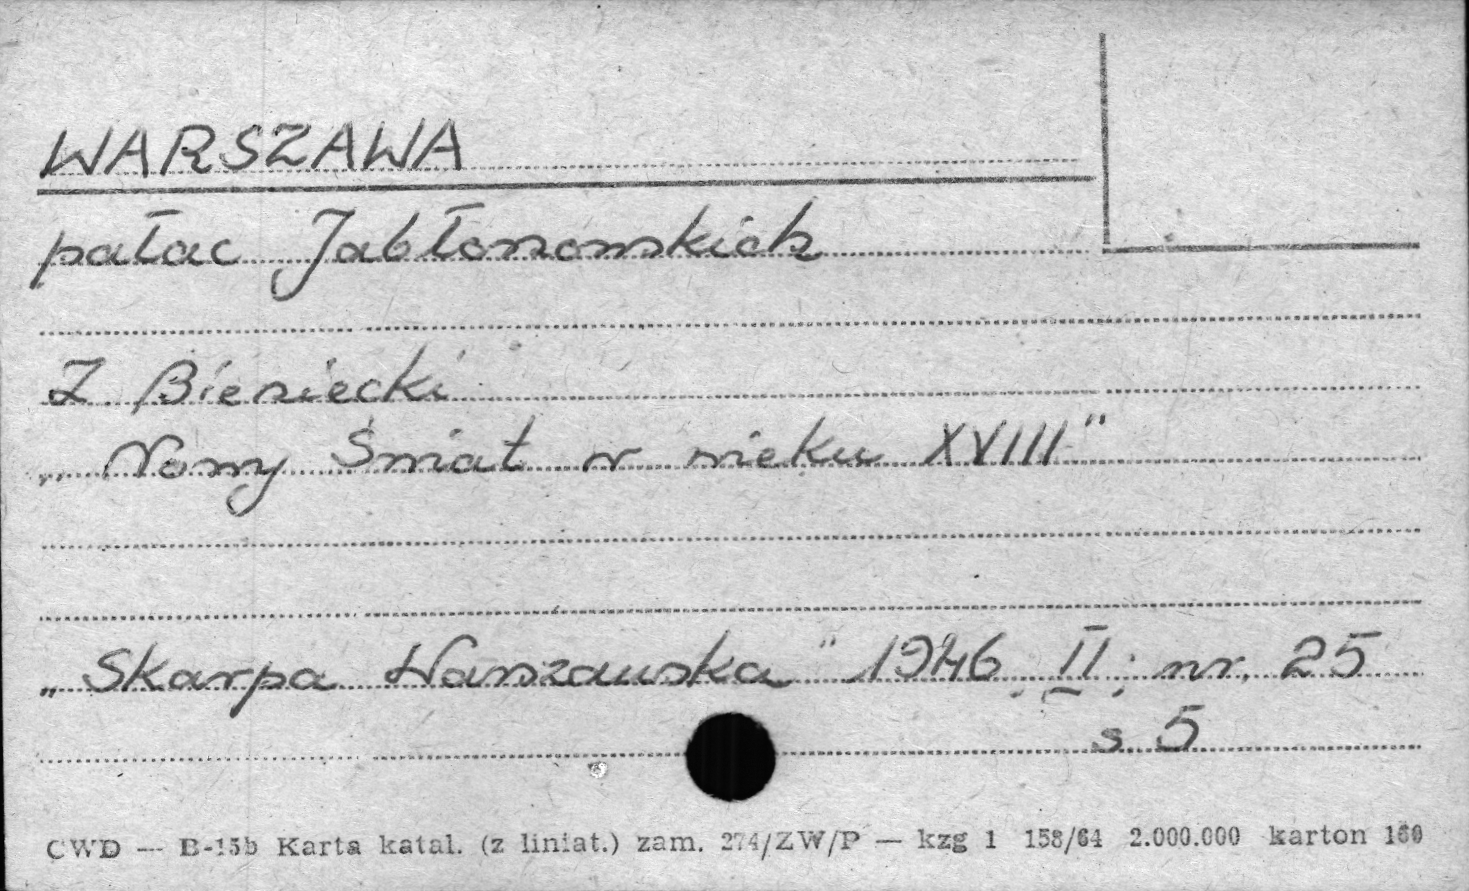 WARSZAWA
pałac Jabłonowskich
Z Bieniecki
„Nowy Świat w wieku XVIII"
„Skarpa Warszawska" 1946. II; nr. 25
s 5
CWD — B-15b Karta katal. (z liniat.) zam. 274/ZW/P — kzg 1 158/64 2.000.000 karton 160